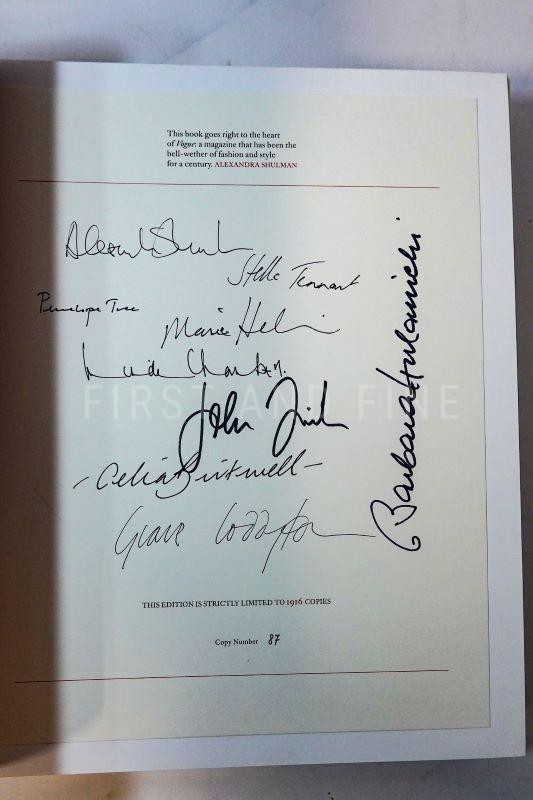 This book goes right to the heart
of Vogue: a magazine that has been the
bell-wether of fashion and style
for a century. ALEXANDRA SHULMAN
Stella Tennant
Penelope Tree
Marie Hel
John
FIRST AND FINE
- Celia Birtwell -
Grace Coddington
Barbara Hulanicki
THIS EDITION IS STRICTLY LIMITED TO 1916 COPIES
Copy Number 87